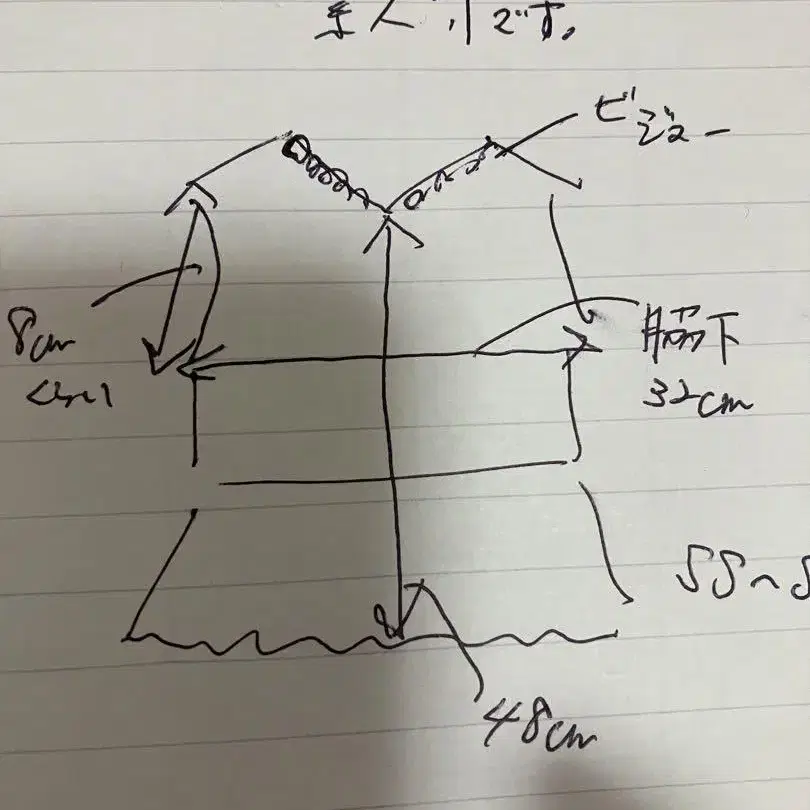 素人リです。
ビジュー
8cm
くらい
脇下
32cm
55~5
48cm